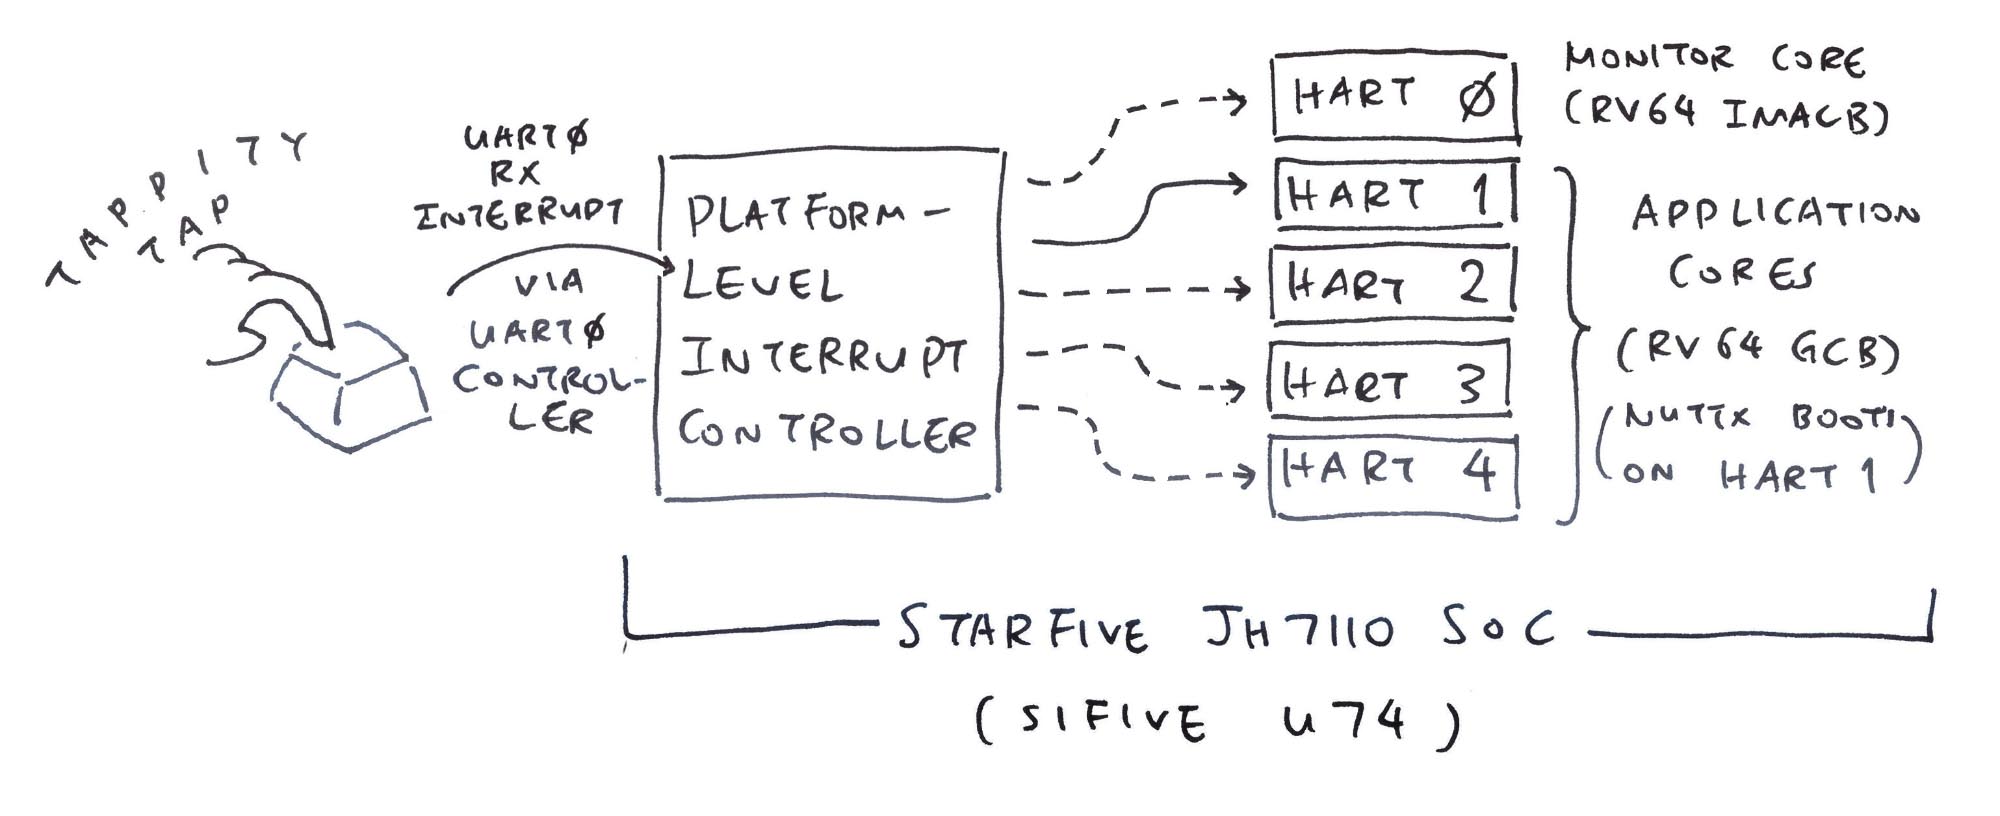 TAPPITY
TAP
UART0
RX
INTERRUPT
VIA
UART0
CONTROL-
LER
PLATFORM-
LEVEL
INTERRUPT
CONTROLLER
HART 0
HART 1
HART 2
HART 3
HART 4
MONITOR CORE
(RV64 IMACB)
APPLICATION
CORES
(RV64 GCB)
(NUTTX BOOTS
ON HART 1)
STARFIVE JH7110 SOC
(SIFIVE U74)